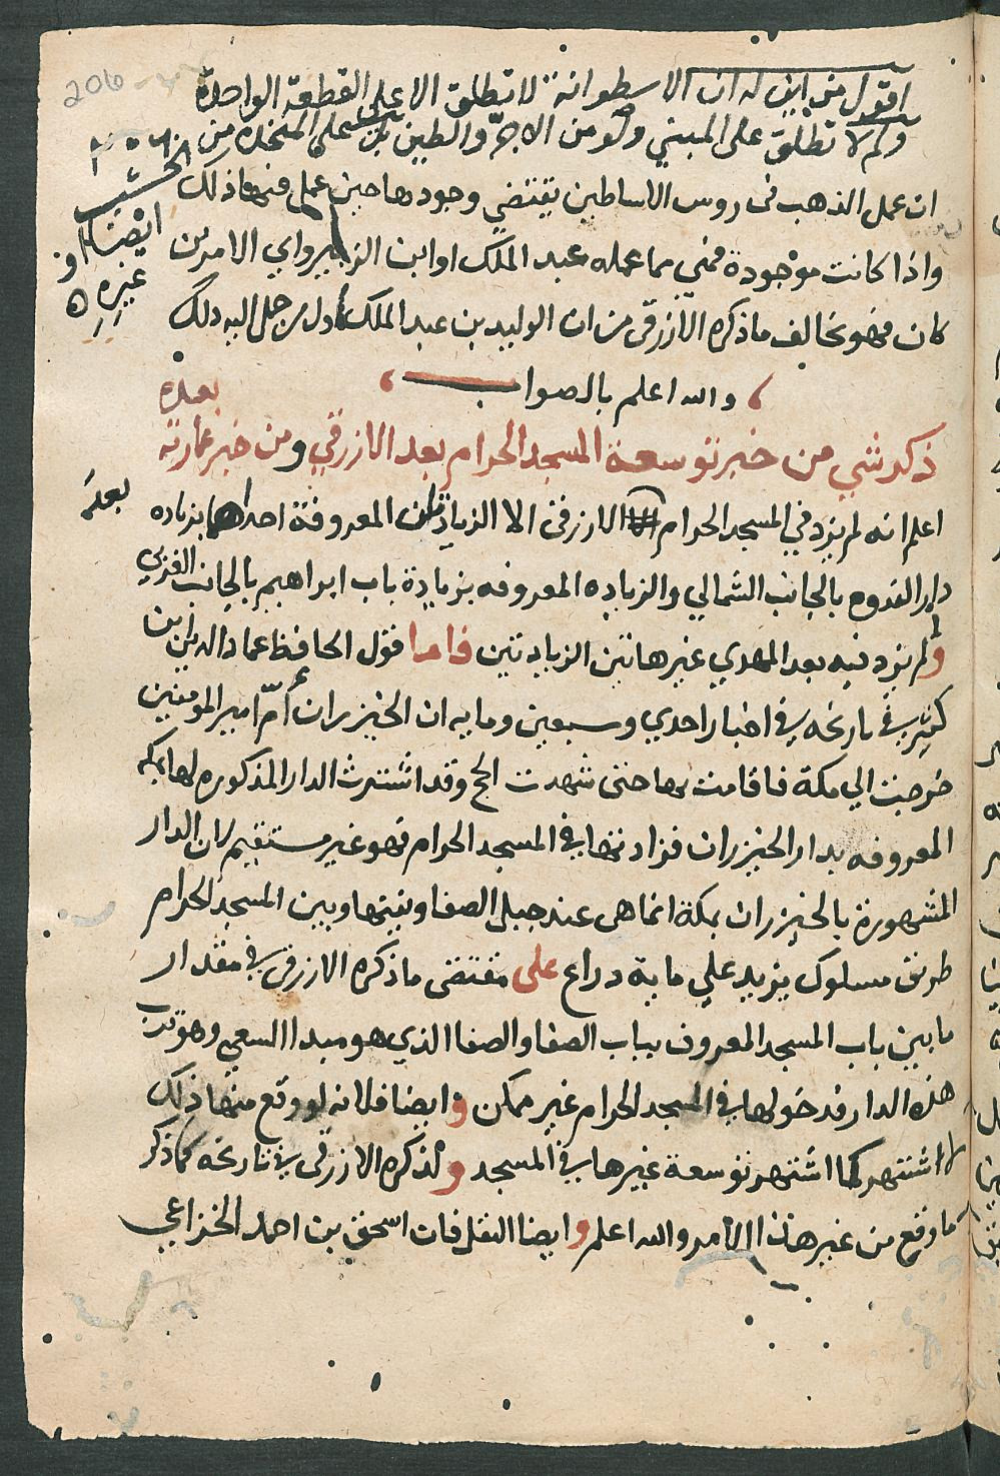 206
اقول من اين له ان الاسطوانة لا تطلق الا على القطعة الواحدة
ولم لا تطلق على المبني ولو من الاجر والطين بل على المتخذة من
الخشب
ايضا او
غيره
ان عمل الذهب في روس الاساطين يقتضي وجودها حين عمل فيها ذلك
واذا كانت موجودة فهي مما عمله عبد الملك او ابن الزبير واي الامرين
كان فهو يخالف ما ذكره الازرقي من ان الوليد بن عبد الملك اول من حمل اليه ذلك
والله اعلم بالصواب
ذكر شي من خبر توسعة المسجد الحرام بعد الازرقي ومن خبر عمارته
بعده
اعلم انه لم يزد في المسجد الحرام الازرقي الا الزيادتان المعروفة احداهما بزياده
بعد
دار الندوه بالجانب الشمالي والزياده المعروفه بزيادة باب ابراهيم بالجانب الغربي
ولم يزد فيه بعد المهدي غير هاتين الزيادتين فاما قول الحافظ عماد الدين ابن
كثير في تاريخه في اخبار احدي وسبعين ومايه ان الخيزران أم امير المومنين
خرجت الي مكة فاقامت بها حتى شهدت الحج وقد اشترت الدار المذكوره لها بمكه
المعروفه بدار الخيزران فزادتها في المسجد الحرام فهو غير مستقيم لان الدار
المشهورة بالخيزران بمكة انما هى عند جبل الصفا وبينها وبين المسجد الحرام
طريق مسلوك يزيد علي ماية دراع على مقتضى ما ذكره الازرقي في مقدار
ما بين باب المسجد المعروف بباب الصفا والصفا الذي هو مبدا السعي وهو قريب
هذه الدار فدخولها في المسجد الحرام غير ممكن وايضا فلانه لو وقع منها ذلك
لاشتهر كما اشتهر توسعة غيرها في المسجد ولذكره الازرقي في تاريخه كما ذكر
ما وقع من غير هذا الامر والله اعلم وايضا النقل فات اسحق بن احمد الخزاعي